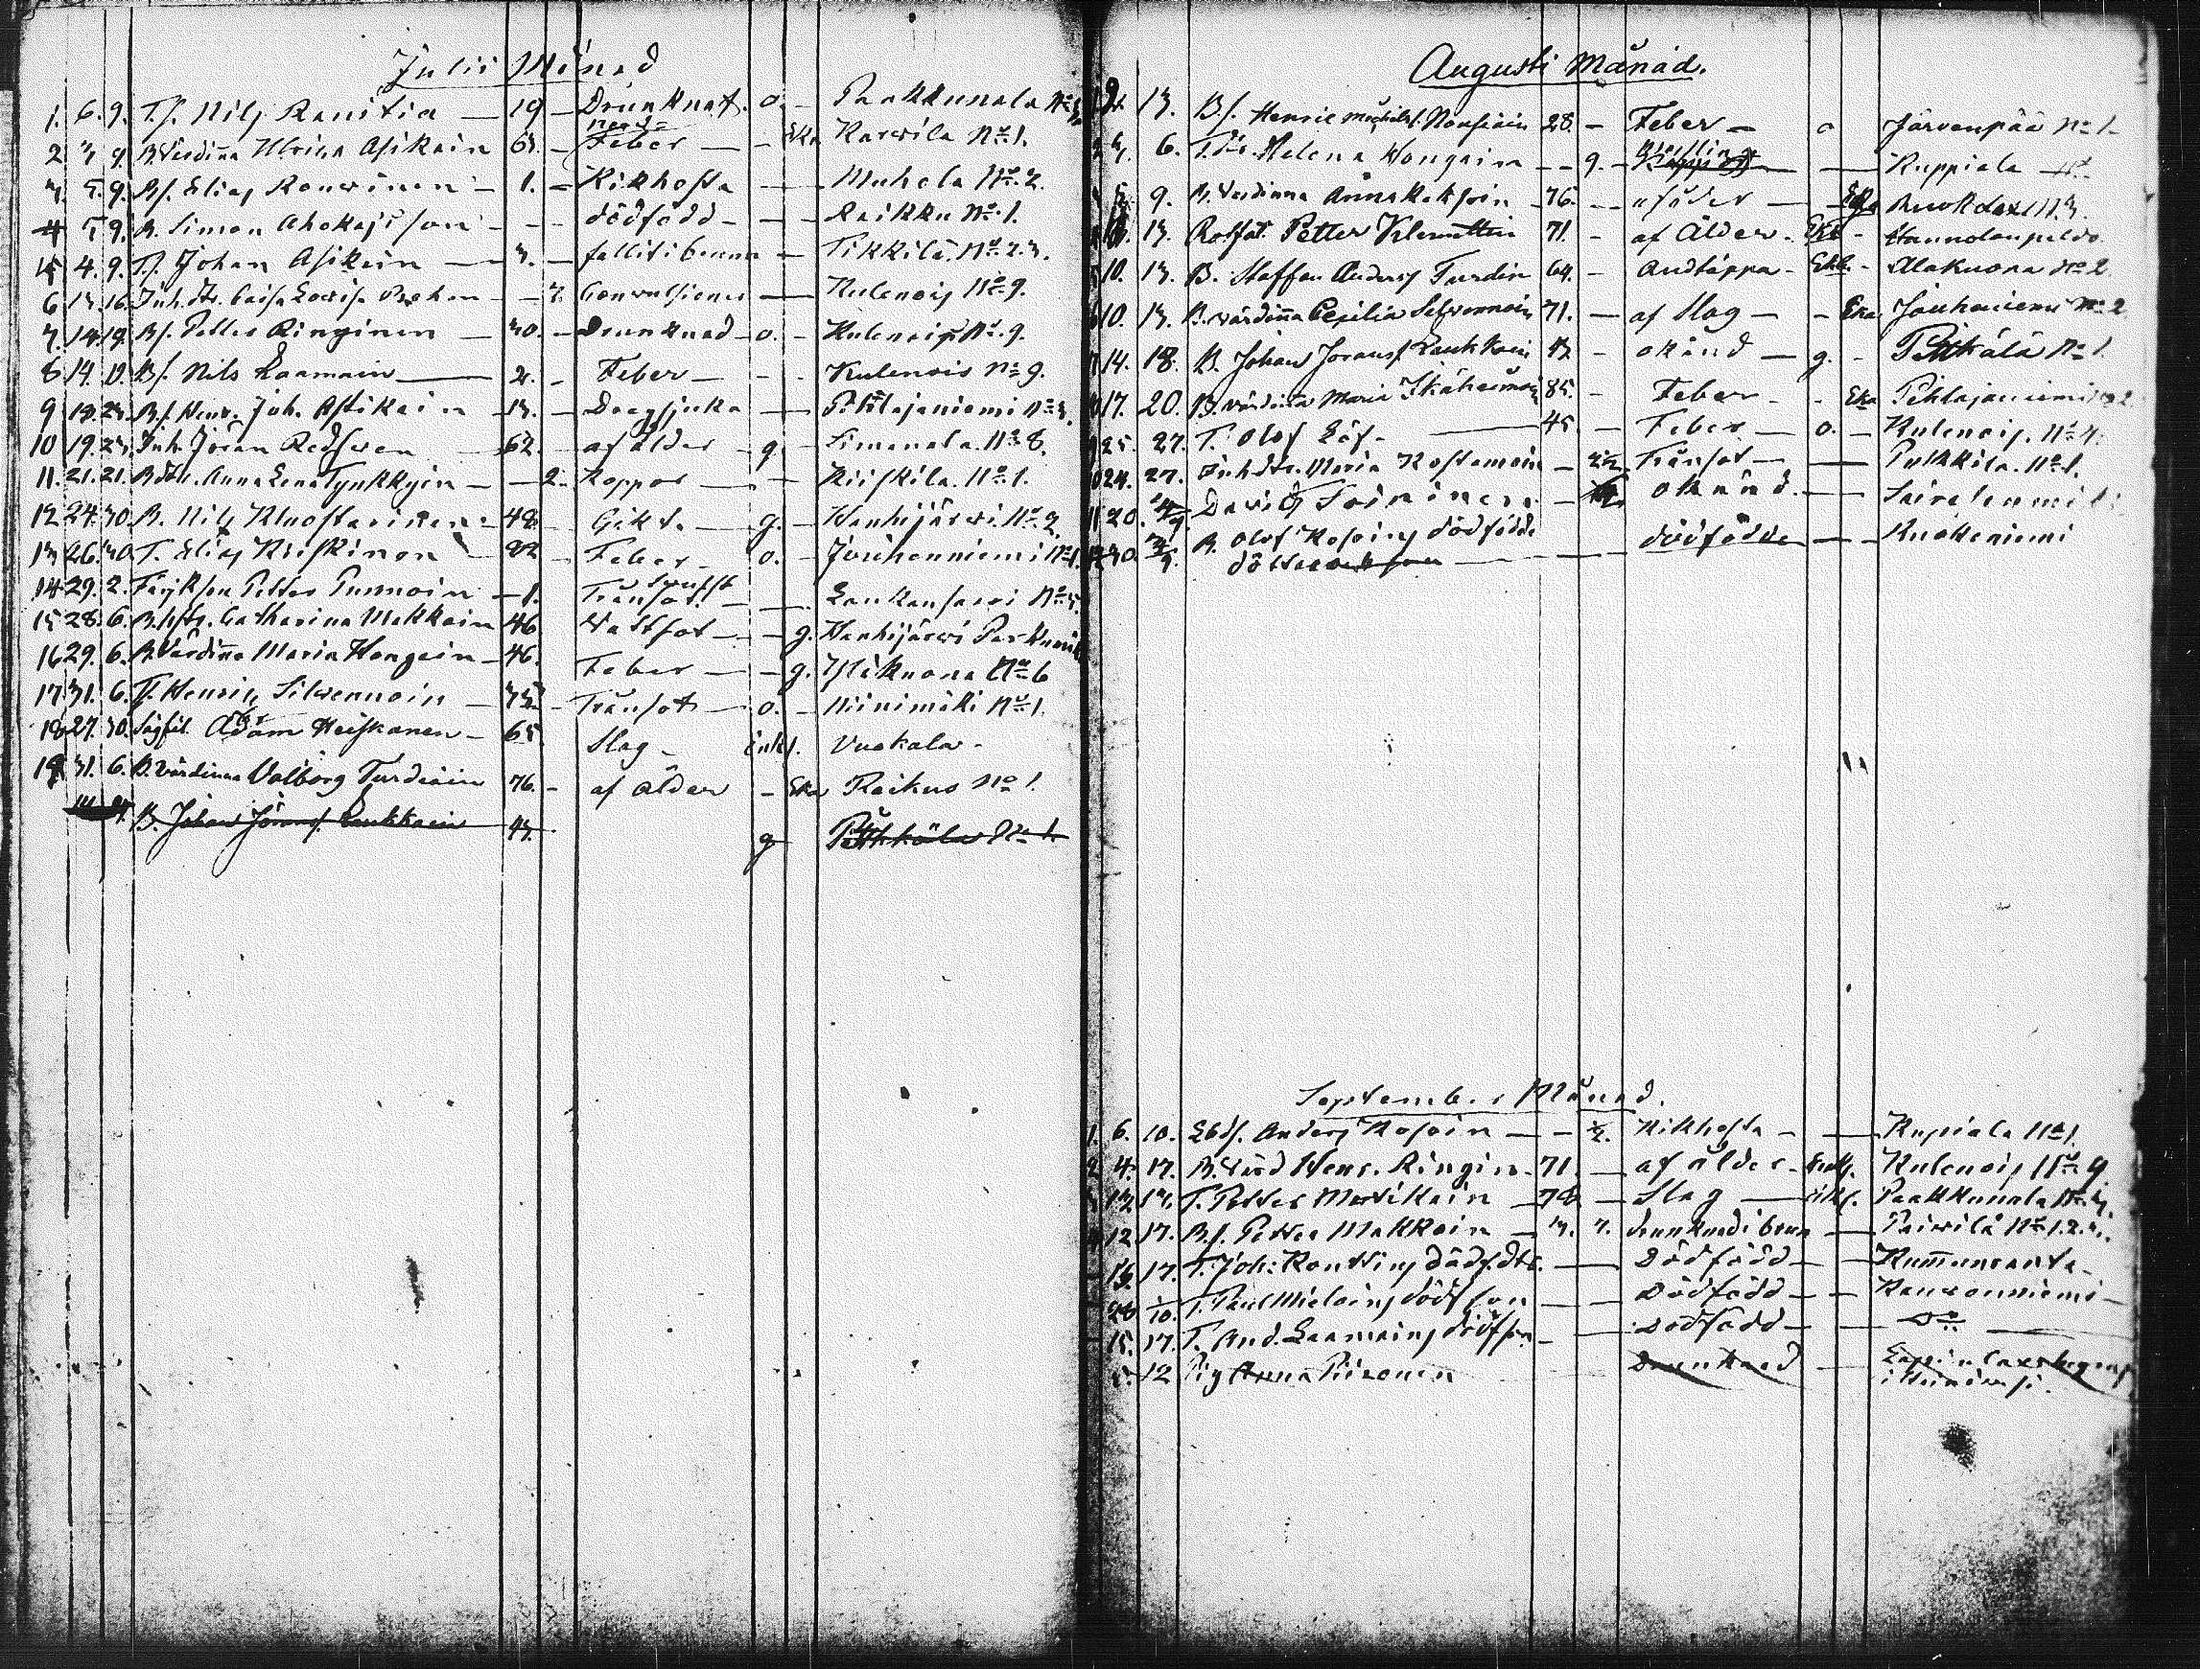 Julii Månad
1. 6. 9. T.s. Nils Ranitia — 19 — Drunknat. o. — Paakkunala No
2 3 9. B. Verdinna Ulrica Asikain 63. — Feber — Eka Karvila No 1.
3. 5. 9. Bs. Elias Rouvinen — 1. — Kikhosta — Muhola No. 2.
4 5 9. B. Simon Ahokas's son — dödfödd — Raikku No. 1.
5 4. 9. Ts. Johan Asikain — 3. — fallit i brunn — Tikkilä. No. 2.3.
6 13 16. Inh. dtr. Caisa Lovisa — 7. Convulsioner — Kulenois No. 9.
7. 14 19. Bs. Petter Ringinen — 30. — Drunknad — o. — Kulenois No. 9.
8 14. 19. Bs. Nils Laamain — 2. — Feber — Kulenois No 9.
9 19. 23. Bs. Henr. Joh. Asikain — 13. — Dragsjuka — Pihlajaniemi No
10 19. 23. Inh. Jöran Redsven 62. af ålder g. Simanala. No 8.
11. 21. 21. B. dtr. Anna Lena Tynkkyin — 2. Koppor — Kiiskilä. No. 1.
12 24. 30. B. Nils Kluostarinen 48. Gikt — g. — Hanhijärvi No. 2
13 26. 30. T. Elias Kriskinen — 22 — Feber — o. — Jouhenniemi No 1.
14 29. 2. Petter Punnoin — 1. Trånsot — Laukansaari No
15 28. 6. B. hstr. Catharina Makkain 46 Wattsot — g. Hanhijärvi
16 29. 6. B. Värdinna Maria Hongain — 46. Feber — g. Ylikuona No 6
17 31. 6. T. Henric Silvennoin — Trånsot — o. — Niinimäki No 1.
18 27. 30. Adam Heiskanen — 65. Slag — Enkl. Vuokala —
19 31. 6. B. Värdinna Valborg Turdiain 76. — af ålder — Eka Raikuu No 1.
B. Johan Jöranss. Laukkain 43. g Pitkälä No 1.
Augusti Månad.
13. B.s. Henric Michelss. Nousiain 28. — Feber — o Järvenpää No 1.
3. 6. T. dr. Helena Hongain — 9. — Ruppiala
9. B. Verdinna Anna Kaksoin 76. — af ålder — Eka
13. Rotfat. Petter Klemettin 71. — af Ålder. Ekl —
10. 13. B. Staffan Anderss Turdin 64. — Andtäppa — Ekl. — Alakuona No 2
10. 13. B. värdinna Cecilia Selvennoin 71. — af Slag — Eka Jouhenniemi No 2
14. 18. B. Johan Joranss. Laukkain 43 — okänd — g. — Pitkälä No 1.
17. 20. B. värdinna Maria Ikäheimon 85. — Feber — Eka Pihlajaniemi No 2
9 25. 27. T. Olof Löf. — 45. — Feber — o. — Kulenois. No 4.
10 24. 27. Inh. dtr. Maria Kostamoin — Trånsot — Pulkkila. No 1.
11 20. David Toivinen — okänd. — Sairalanmäki
12 30. B. Olof Kosoins dödfödde dotter — dödfödde — Ruokoniemi
September Månad.
1. 6. 10. Anders Kosoin — 1/2. Kikhosta — Rupiala No 1.
2 4. 17. B. Värd Henr. Ringin 71. — af ålder — Enkl. Kulenois No 9
3 13 17. T. Petter Matikain — 78 — Slag — Enkl. Paakkunala No
4 12 17. B.s. Petter Makkoin — 3. 7. drunknad i brun — Päivilä No 1. 2.
16. 17. T. Joh: Konttins dödf. dtr. — Dödfödd — Kummunranta —
28 T. Paul Mieloins dödf son — Dödfödd — Kauvonniemi —
15. 17. T. And. Laamains dödf. son — Dödfödd — do
5. 12 Pig Anna Piironen Drunknad